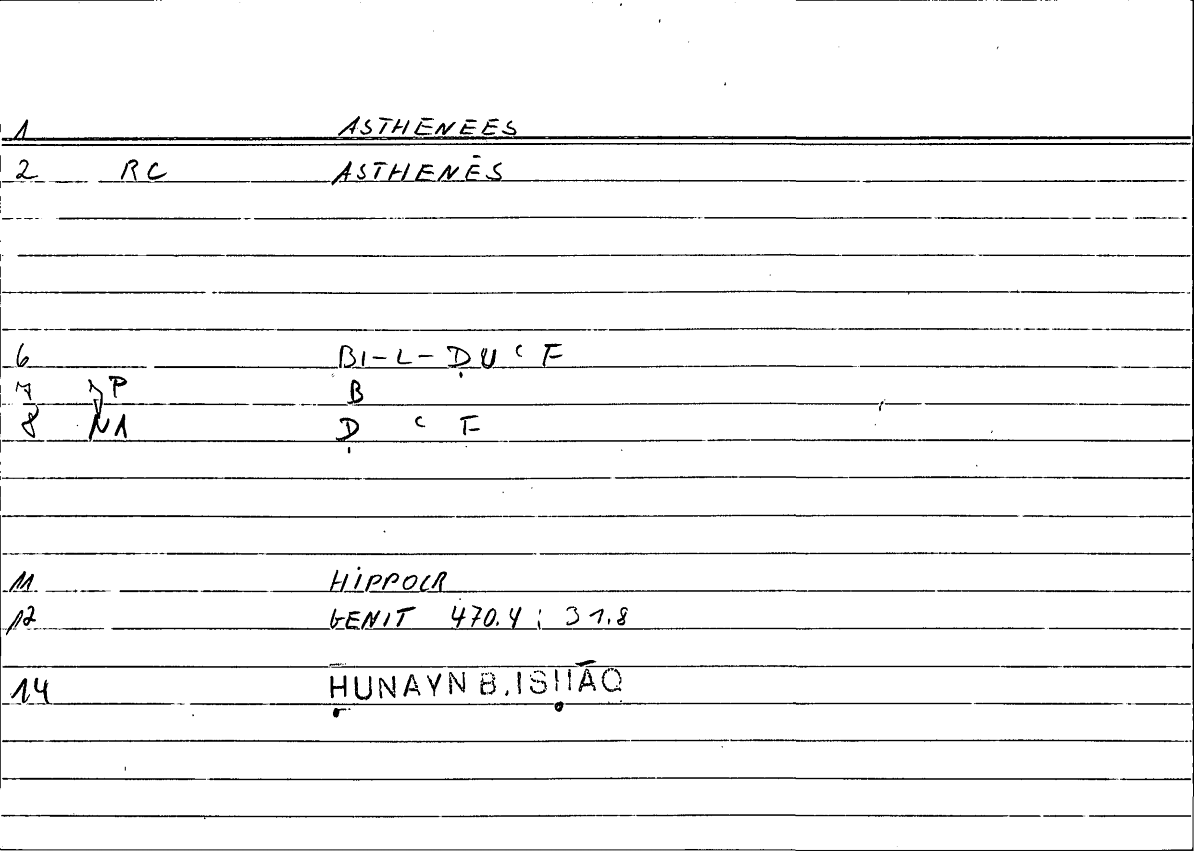 1 ASTHENEES
2 RC ASTHENĒS
6 BI-L-ḌUʿF
7 JP B
8 NA Ḍ ʿ F
11 HIPPOCR
12 GENIT 470.4; 31.8
14 ḤUNAYN B. ISḤĀQ